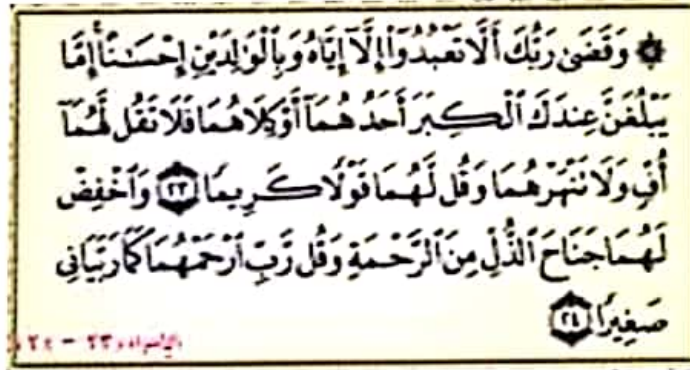 ۞ وَقَضَىٰ رَبُّكَ أَلَّا تَعْبُدُوٓا۟ إِلَّآ إِيَّاهُ وَبِٱلْوَٰلِدَيْنِ إِحْسَـٰنًا ۚ إِمَّا
يَبْلُغَنَّ عِندَكَ ٱلْكِبَرَ أَحَدُهُمَآ أَوْ كِلَاهُمَا فَلَا تَقُل لَّهُمَآ
أُفٍّ وَلَا تَنْهَرْهُمَا وَقُل لَّهُمَا قَوْلًا كَرِيمًا ٢٣ وَٱخْفِضْ
لَهُمَا جَنَاحَ ٱلذُّلِّ مِنَ ٱلرَّحْمَةِ وَقُل رَّبِّ ٱرْحَمْهُمَا كَمَا رَبَّيَانِى
صَغِيرًا ٢٤
الإسراء ٢٣ - ٢٤